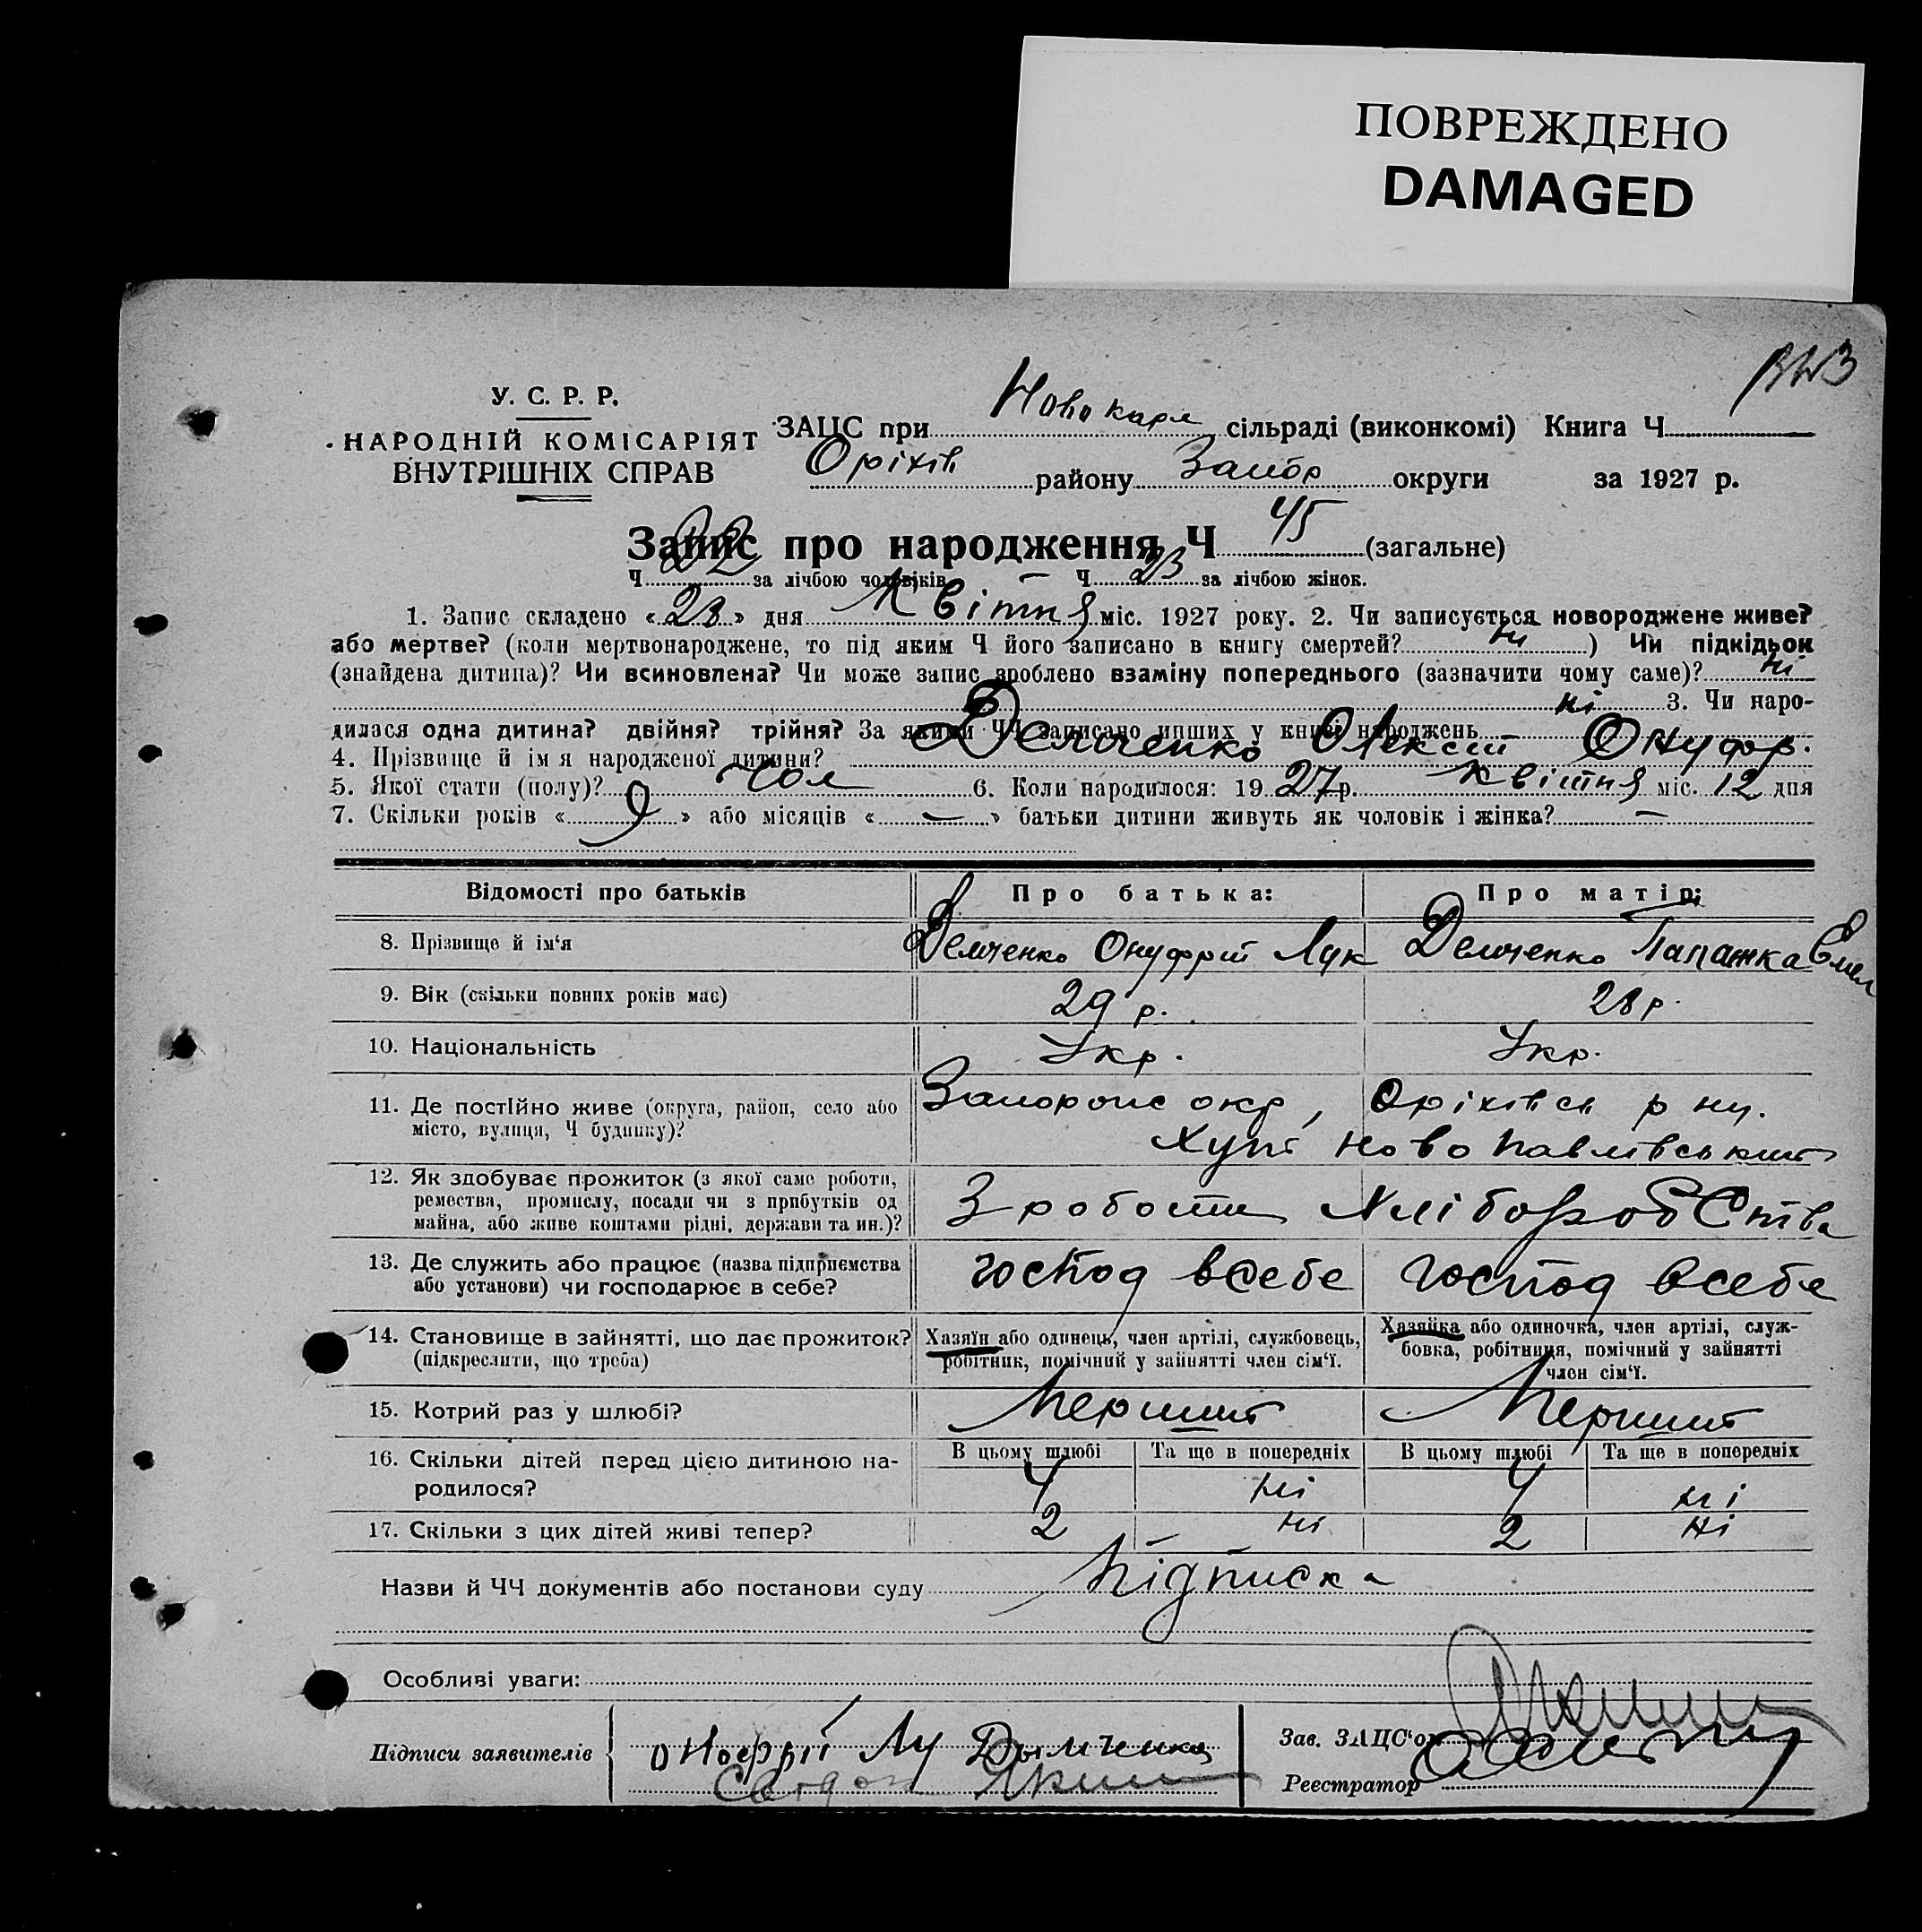 ПОВРЕЖДЕНО
DAMAGED
У. С. Р. Р.
НАРОДНІЙ КОМІСАРІЯТ
ВНУТРІШНІХ СПРАВ
ЗАЦС при Новокарл сільраді (виконкомі) Книга Ч
Оріхів району Запор округи за 1927 р.
Запис про народження Ч 45 (загальне)
Ч 22 за лічбою чоловіків — Ч 23 за лічбою жінок.
1. Запис складено «23» дня Квітня міс. 1927 року. 2. Чи записується новороджене живе?
або мертве? (коли мертвонароджене, то під яким Ч його записано в книгу смертей? ні ) Чи підкідьок
(знайдена дитина)? Чи всиновлена? Чи може запис зроблено взаміну попереднього (зазначити чому саме)? ні
ні 3. Чи наро-
дилася одна дитина? двійня? трійня? За якими ЧЧ записано инших у книзі народжень
4. Прізвище й ім я народженої дитини? Демченко Олексій Онуфр.
5. Якої стати (полу)? Чол 6. Коли народилося: 1927р. квітня міс. 12 дня
7. Скільки років «9» або місяців «—» батьки дитини живуть як чоловік і жінка? —
Відомості про батьків Про батька: Про матір:
8. Прізвище й ім‘я Демченко Онуфрій Лук Демченко Палажка Емел
9. Вік (скільки повних років має) 29 р. 28 р.
10. Національність Укр. Укр.
11. Де постійно живе (округа, район, село або Запорожс окр, Оріхівсь р ну.
місто, вулиця, Ч будинку)? Хут Ново Павлівський
12. Як здобуває прожиток (з якої саме роботи,
ремества, промислу, посади чи з прибутків од З роботи Хліборобства
майна, або живе коштами рідні, держави та ин.)?
13. Де служить або працює (назва підприємства господ всебе господ всебе
або установи) чи господарює в себе?
14. Становище в зайнятті, що дає прожиток? Хазяїн або одинець, член артілі, службовець, Хазяйка або одиночка, член артілі, служ-
(підкреслити, що треба) робітник, помічний у зайнятті член сім‘ї. бовка, робітниця, помічний у зайнятті
член сім‘ї.
15. Котрий раз у шлюбі? Перший Перший
16. Скільки дітей перед цією дитиною на- В цьому шлюбі Та ще в попередніх В цьому шлюбі Та ще в попередніх
родилося? 4 ні 4 ні
17. Скільки з цих дітей живі тепер? 2 ні 2 ні
Назви й ЧЧ документів або постанови суду Підписка
Особливі уваги:
Підписи заявителів Оноефрій Лу Дымченко Зав. ЗАЦС‘ом
Реєстратор